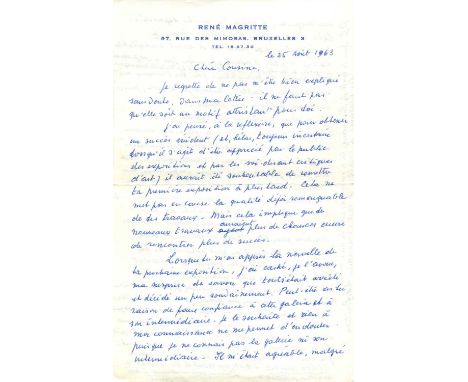 RENÉ MAGRITTE
97, RUE DES MIMOSAS, BRUXELLES 3
TEL. 15.07.30
le 25 août 1963
Chère Cousine,
Je regrette de ne pas m'être bien expliqué
sans doute, dans ma lettre - il ne faut pas
qu'elle soit un motif attristant pour toi.
J'ai pensé, à la réflexion, que pour obtenir
un succès évident (et, hélas, toujours incertain
lorsqu'il s'agit d'être apprécié par le public
des expositions et par les soi-disant critiques
d'art) il aurait été souhaitable de remettre
ta première exposition à plus tard. Cela ne
met pas en cause la qualité déjà remarquable
de tes travaux - Mais cela implique que de
nouveaux travaux auraient plus de chances encore
de rencontrer plus de succès.
Lorsque tu m'as appris la nouvelle de
ta prochaine exposition, j'ai caché, je l'avoue,
ma surprise de savoir que tout était arrêté
et décidé un peu soudainement. Peut-être as-tu
raison de faire confiance à cette galerie et à
son intermédiaire. Je le souhaite et rien à
ma connaissance ne me permet d'en douter
puisque je ne connais pas la galerie ni son
intermédiaire - Il m'était agréable, malgré